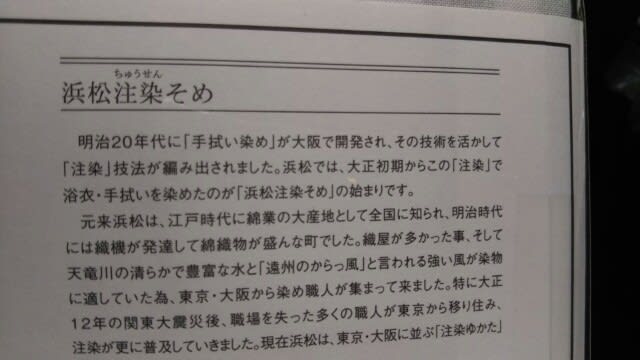 ちゅうせん
浜松注染そめ
明治20年代に「手拭い染め」が大阪で開発され、その技術を活かして
「注染」技法が編み出されました。浜松では、大正初期からこの「注染」で
浴衣・手拭いを染めたのが「浜松注染そめ」の始まりです。
元来浜松は、江戸時代に綿業の大産地として全国に知られ、明治時代
には織機が発達して綿織物が盛んな町でした。織屋が多かった事、そして
天竜川の清らかで豊富な水と「遠州のからっ風」と言われる強い風が染物
に適していた為、東京・大阪から染め職人が集まって来ました。特に大正
12年の関東大震災後、職場を失った多くの職人が東京から移り住み、
注染が更に普及していきました。現在浜松は、東京・大阪に並ぶ「注染ゆかた」